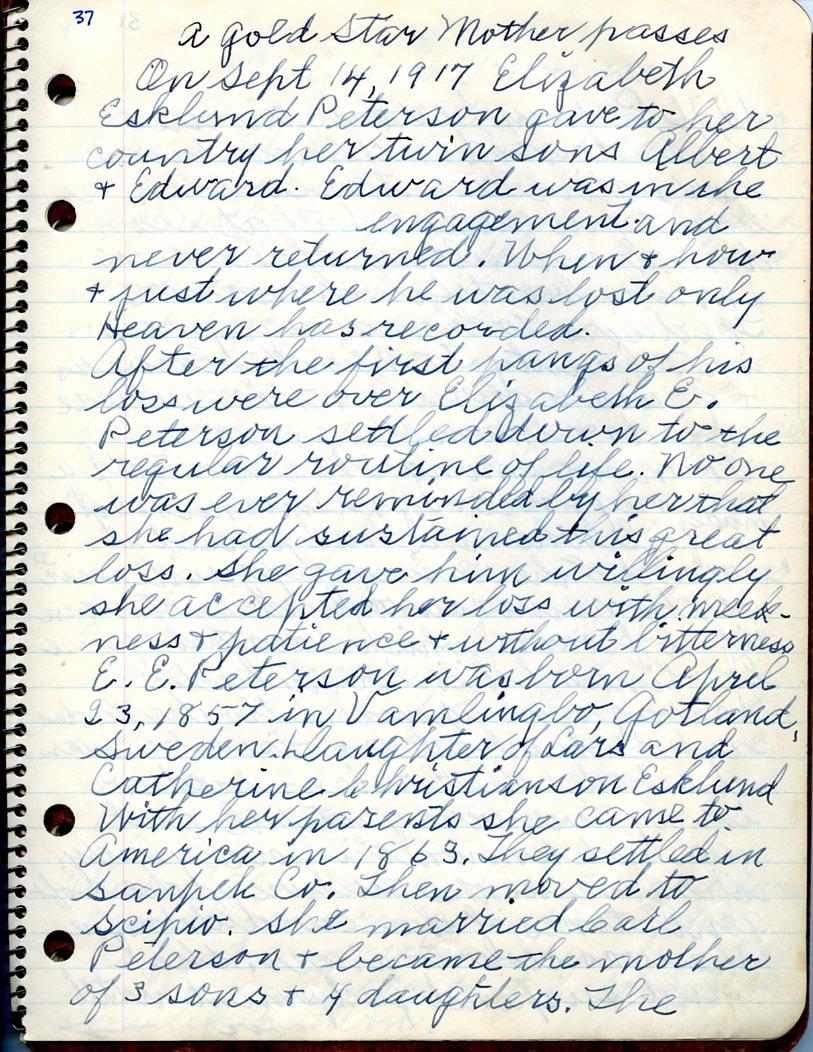 37
A Gold Star Mother passes
On Sept 14, 1917 Elizabeth
Esklund Peterson gave to her
country her twin sons Albert
+ Edward. Edward was in the
engagement and
never returned. When + how
+ just where he was lost only
Heaven has recorded.
After the first pangs of his
loss were over Elizabeth E.
Peterson settled down to the
regular routine of life. No one
was ever reminded by her that
she had sustained this great
loss. She gave him willingly
she accepted her loss with meek-
ness + patience + without bitterness
E. E. Peterson was born April
23, 1857 in Vamlingbo, Gotland,
Sweden. Daughter of Lars and
Catherine Christianson Esklund
With her parents she came to
America in 1863. They settled in
Sanpek Co. Then moved to
Scipio. She married Carl
Peterson + became the mother
of 3 sons + 4 daughters. The